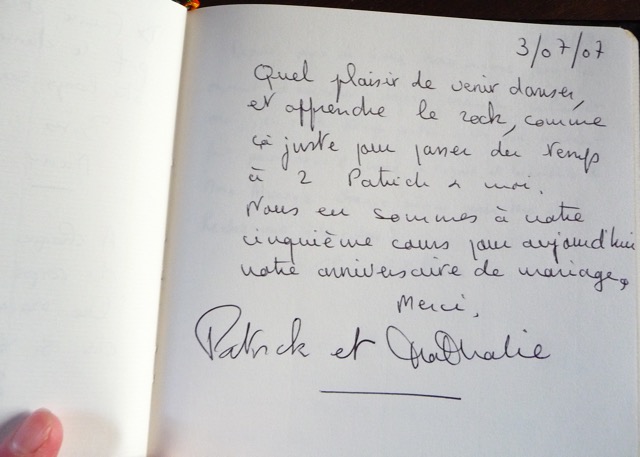 3/07/07
Quel plaisir de venir danser,
et apprendre le rock, comme
ça juste pour passer du temps
à 2 Patrick & moi.
Nous en sommes à notre
cinquième cours pour aujourd'hui
notre anniversaire de mariage.
Merci.
Patrick et Nathalie